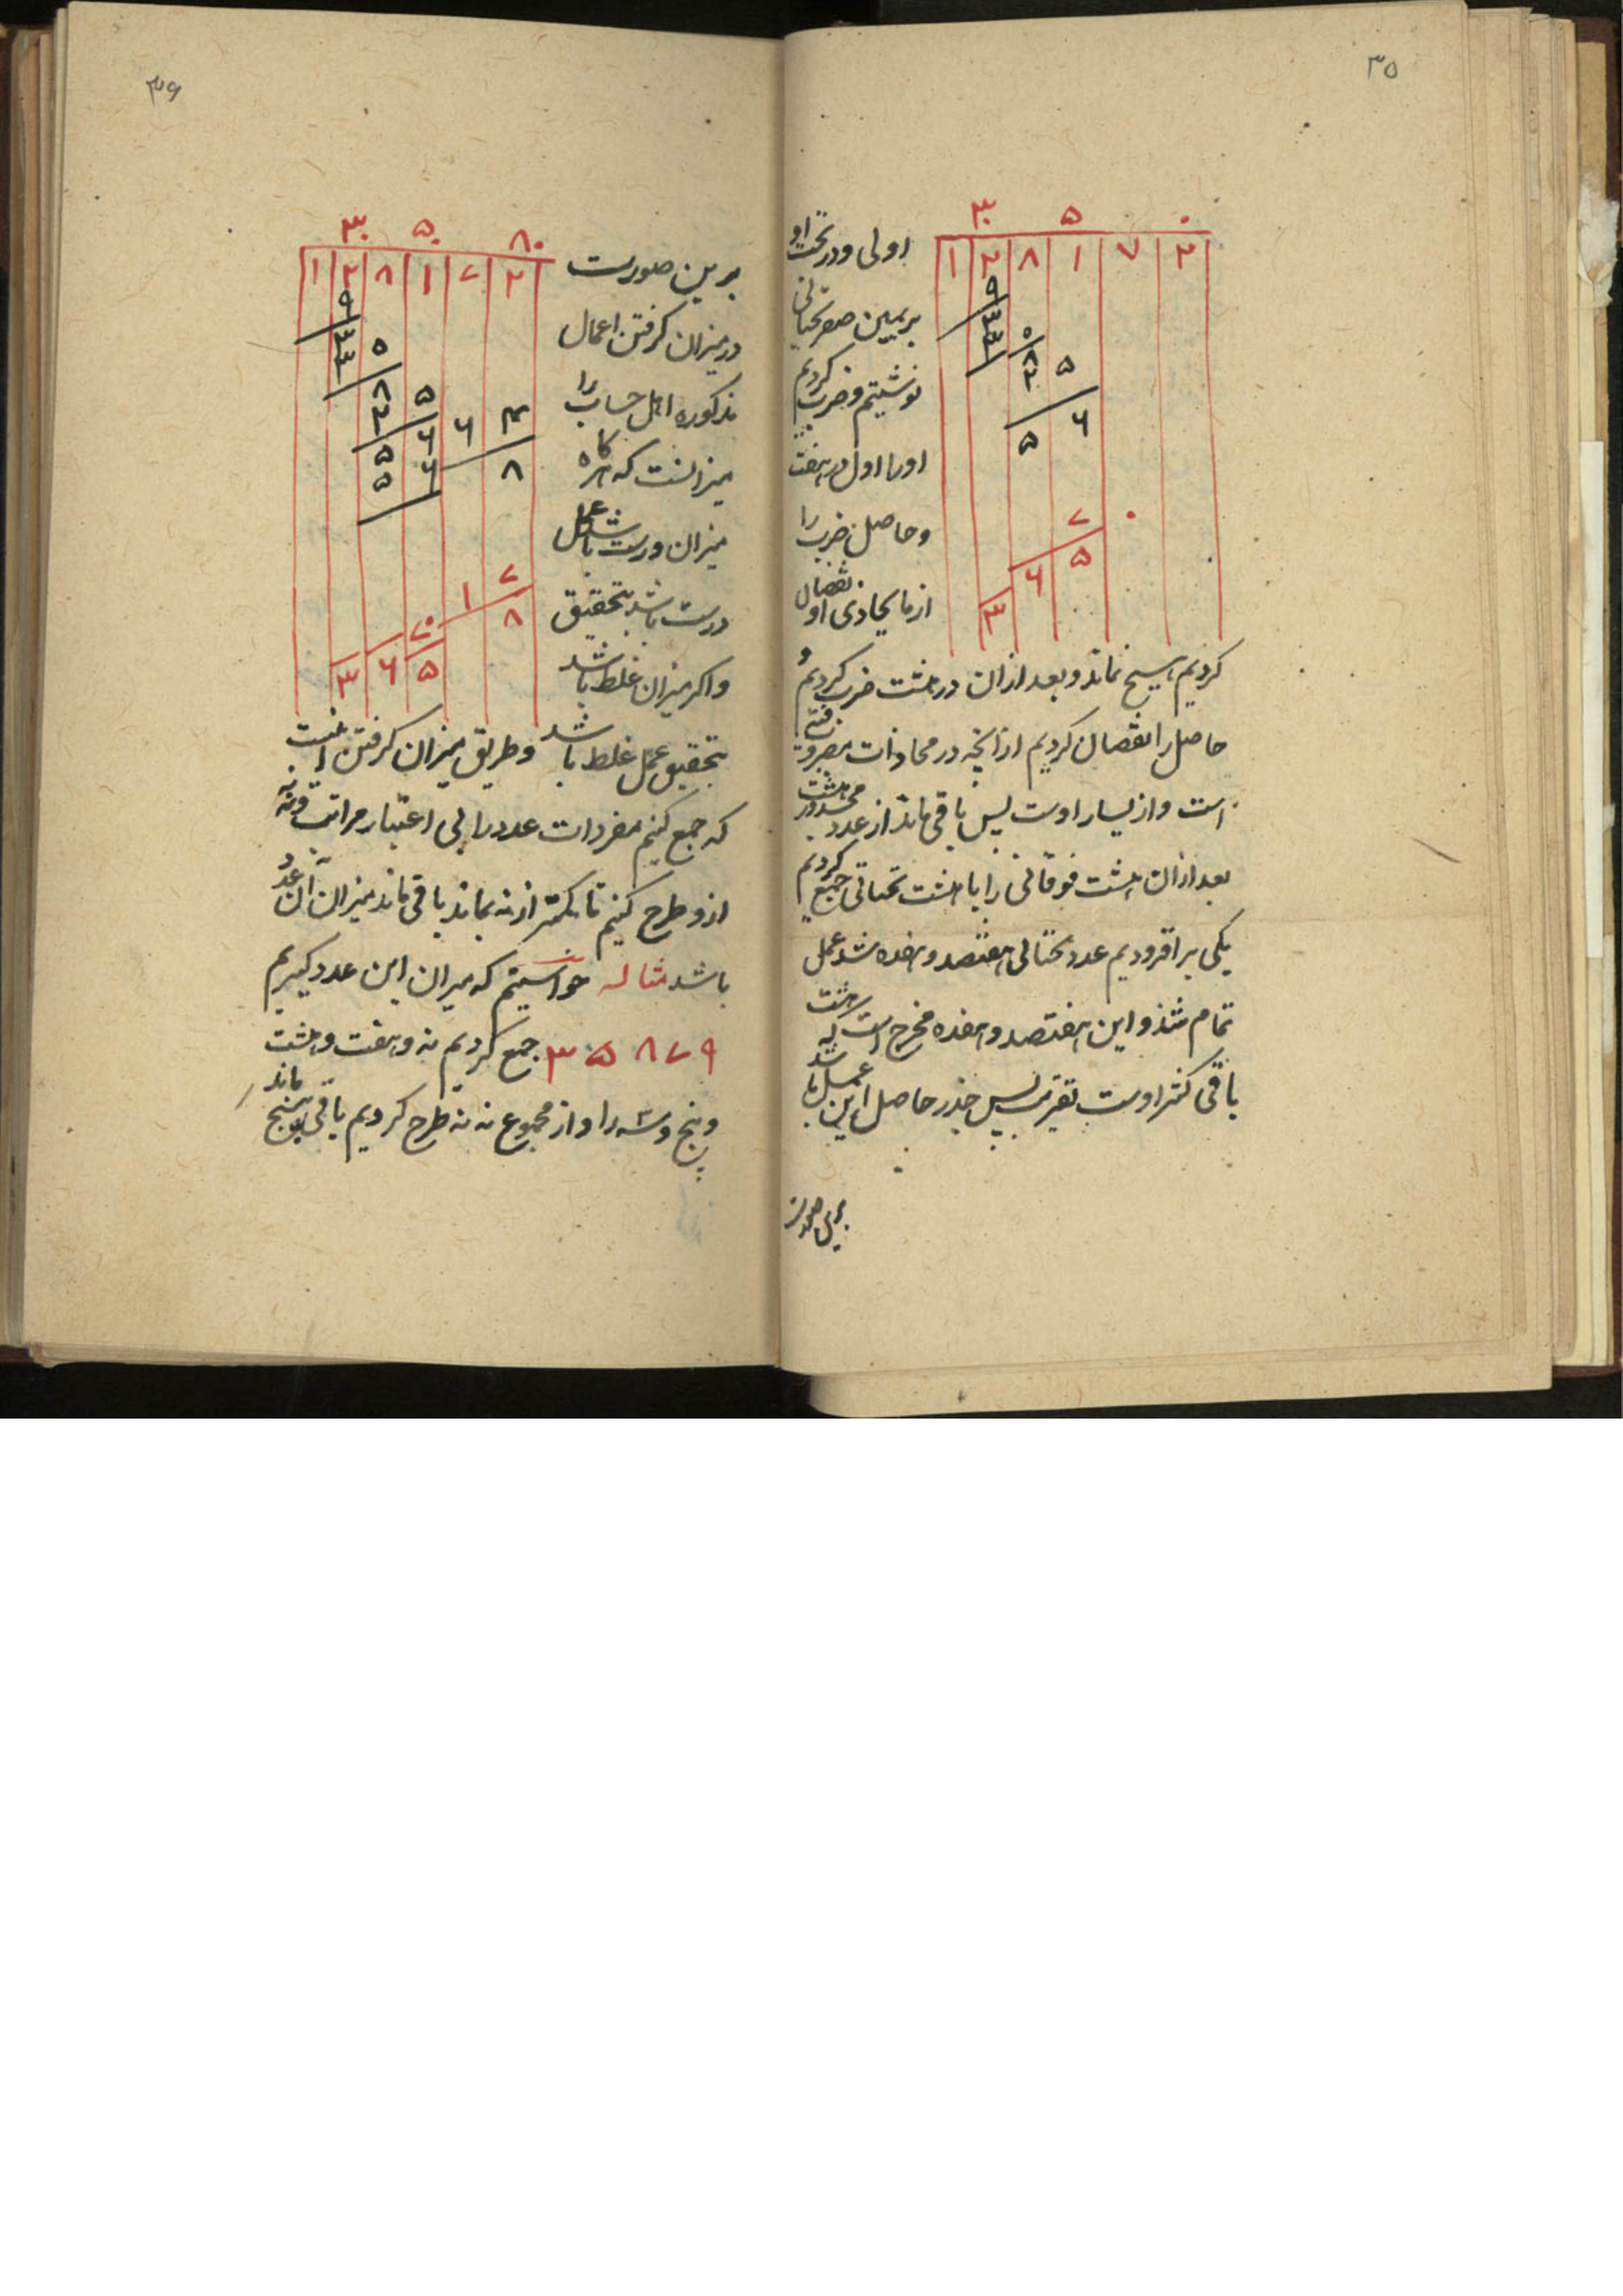 ۳۵
۳ ۵ ۰
۱ ۲ ۸ ۱ ۷ ۲
۹
۳
۳
۵
۸
۲
۵
۶
۵
۷ ۰
۵
۶
۳
اولی و در تحت او
بر یمین صفر تحتانی
نوشتیم و ضرب کردیم
او را اول در هفت
و حاصل ضرب را
از ما یحاذی او نقصان
کردیم هیچ نماند و بعد از آن در هشت ضرب کردیم و
حاصل را نقصان کردیم از آنچه در محاذات مضروب فیه
است و از یسار اوست پس باقی ماند از عدد مجذور هشت
بعد از آن هشت فوقانی را با هشت تحتانی جمع کردیم
یکی بر افزودیم عدد تحتانی هفتصد و هفده شد و عمل
تمام شد و این هفتصد و هفده مخرج است که هشت
باقی کسر اوست تقریبا پس جذر حاصل این عمل باشد
برین صورت
۳۶
۳ ۵ ۸
۱ ۲ ۸ ۱ ۷ ۲
۹
۳
۳
۵
۸
۲
۵
۶ ۶ ۴
۵ ۶ ۸
۵
۷
۱ ۸
۷۰
۳ ۶ ۵
برین صورت
در میزان گرفتن اعمال
مذکوره اهل حساب را
میزانست که هرگاه
میزان درست باشد عمل
درست باشد بتحقیق
و اگر میزان غلط باشد
بتحقیق عمل غلط باشد و طریق میزان گرفتن آنست
که جمع کنیم مفردات عدد را بی اعتبار مراتب و نه نه
ازو طرح کنیم تا کمتر از نه بماند باقی ماند میزان آن عدد
باشد مثاله خواستیم که میزان این عدد گیریم
۳ ۵ ۸ ۷ ۹ جمع کردیم نه و هفت و هشت
و پنج و سه را و از مجموع نه نه طرح کردیم باقی ماند پنج